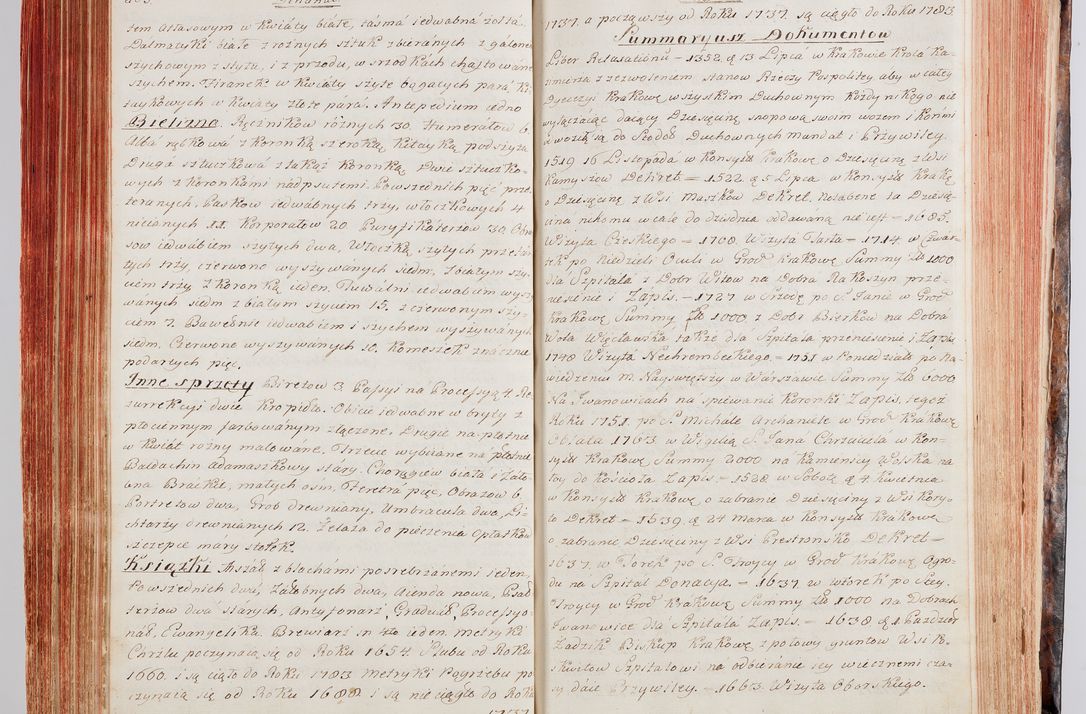 tem Atłasowym w Kwiaty białe, taśma iedwabna żołta.
Dalmatyki białe z rożnych sztuk zbieranych z galonem
szychowym z tyłu, i z przodu, w srzodkach chaftowane
szychem. Firanek w Kwiaty szyte bogatych para,
w Kwiaty złote para. Antepedium iedno
Bielizna. Ręcznikow rożnych 30. Humerałow 6.
Alba rąbkowa z Koronką szeroką Kitayką podszyta
Druga sztuczkowa z takąż Koronką. Dwie sztuczko-
wych z Koronkami nadpsutemi. Powszednich pięć prze-
teranych. Paskow iedwabnych trzy, włoczkowych 4
nicianych 11. Korporałow 20. Puryfikaterzow 30. Obru-
sow iedwabiem szytych dwa, Włoczką szytych
trzy, czerwono wyszywanych siedm, z białym szy-
ciem trzy z Koronką ieden. Tuwalni iedwabiem wyszy-
wanych siedm z białym szyciem 15. z czerwonym szy-
ciem 7. iedwabiem i szychem wyszywanych
siedm. Czerwono wyszywanych 10. Komeszek znacznie
podartych pięć.
Inne sprzęty Biretow 3. Passyi na Processyą 4. Re-
zurrekcyi dwie Kropidła. Obicie iedwabne w bryty z
płociennym farbowanym złączone. Drugie na płotnie
w Kwiat rożny malowane. Trzecie wybiiane na płotnie
Baldachin adamaszkowy stary. Chorągiew biała i Żało-
bna Bracka, małych osm. Feretra pięć, Obrazow 6.
Portretow dwa, Grob drewniany, Umbracula dwa, Li-
chtarzy drewnianych 12. Żelaza do pieczenia Opłatkow
szczepie mary stołek.
Książki Mszał z blachami posrebrzanemi ieden,
Powszednich dwa, Żałobnych dwa, Aienda nowa, Psał-
teriow dwa starych, Antyfonarz, Graduał, Processyo-
nał, Ewangeliika. Brewiarz in 4to ieden. Metryki
Chrztu poczynaią się od Roku 1654. Slubu od Roku
1660. i są ciągło do Roku 1783 Metryki Pogrzebu po-
czynaią się od Roku 1688 i są nie ciągło do Roku
1737.
1737, a począwszy od Roku 1737. są ciągło do Roku 1783.
Summaryusz Dokumentow
Liber Retaxationu – 1352 d 13 Lipca w Krakowie Krola Ka-
zimierza z zezwoleniem stanow Rzeczy Pospolitey aby w całey
Dyecezyi Krakowę wszystkim Duchownym Każdy nikogo nie
wyłączaiąc daiący Dziesięcinę snopową swoim wozem i Końmi
woził ią do Stodoł Duchownych mandat i Przywiley.
1519 16 Listopada w Konsyst Krakowę o Dziesięcinę z Wsi
Kamyszow Dekret – 1522 d 5 Lipca w Konsyst Krakę
o Dziesięcinę z Wsi Maszkow Dekret, Notabene ta Dziesię-
cina nikomu wcale do dzisdnia oddawaną nie iest – 1685.
Wizyta Czeskiego – 1708. Wizyta Tarła – 1714 w Czwar-
tek po Niedzieli Oculi w Grod Krakowę Summy Zł 1000
dla Szpitala z Dobr Witow na Dobra Rakoszyn prze-
niesienie i Zapis. – 1727 w Srzodę po S. Janie w Grod
Krakowę Summy Zł 1000 z Dobr Bienkow na Dobra
Wola Więcławska także dla Szpitala przeniesienie i Zapis
1748 Wizyta Niechrembeckiego. – 1751 w Poniedziałe po Na-
wiedzeniu N. Nayswiętszy w Warszawie Summy Zł 6000
Na Iwanowicach na spiewanie Koronki Zapis, tegoż
Roku 1751. po S. Michale Archaniele w Grod Krakowę
Oblata 1763 w Wigilią S. Jana Chrzciciela w Kon-
syst Krakowę Summy 2000 na Kamienicy Wolska na
toy do Kościoła Zapis – 1528 w Sobotę d 4 Kwietnia
w Konsyst Krakowę o zabranie Dziesięciny z Wsi Kory-
to Dekret – 1539 d 24 Marca w Konsyst Krakowę
o zabranie Dziesięciny z Wsi Przestronsko Dekret –
1637. w Torek po S. Troycy w Grod Krakowę Ogro-
du na Szpital Donacya. – 1637 w wtorek po Stey.
Troycy w Grod Krakowę Summy Zł 1000 na Dobrach
Iwanowice dla Szpitala Zapis. – 1638 d 1 Paździer
Zadzik Biskup Krakowę z połowy gruntow Wsi
Szpitalowi na odbieranie iey wiecznemi cza-
sy daie Przywiley. – 1663. Wizyta Oborskiego.